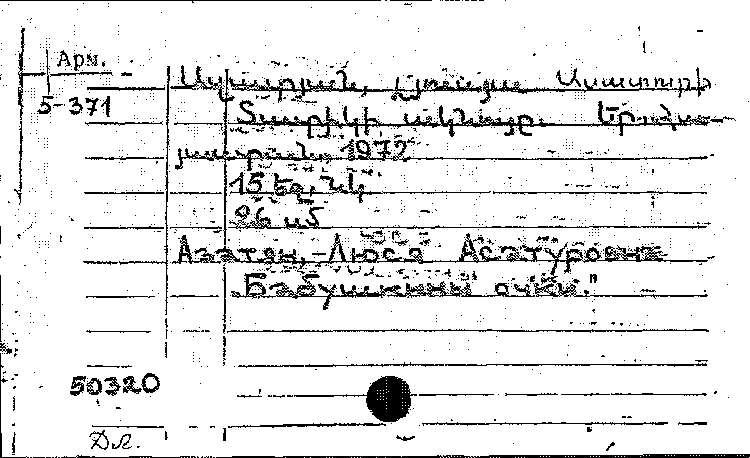 Арм.
5-371
Ասատուրի
Տատիկի ակնոցը.
1972
15 եջ, նկ.
26 սմ
Азатян, Люся Асатуровна
"Бабушкины очки."
50320
Дл.